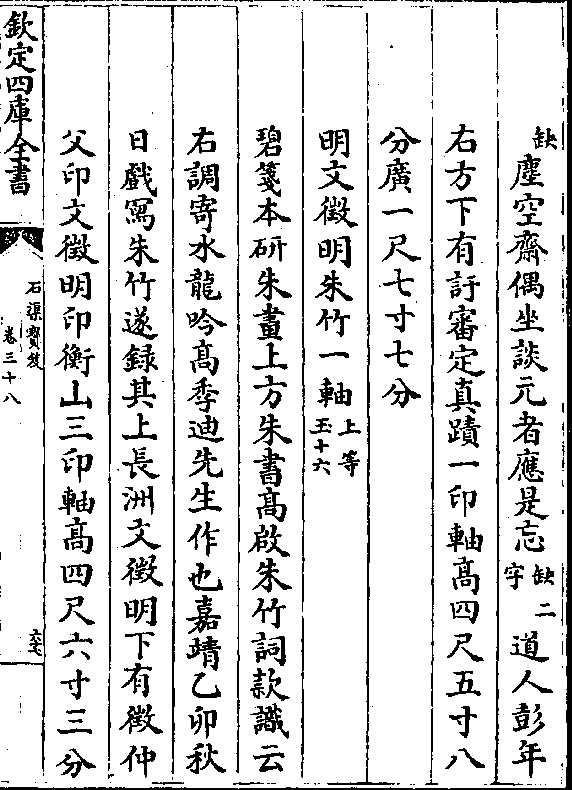 缺塵空齋偶坐談元者應是忘缺二字道人彭年
右方下有訏審定真蹟一印軸髙四尺五寸八
分廣一尺七寸七分
明文徵明朱竹一軸上等玉十六
碧箋本研朱畫上方朱書髙啟朱竹詞款識云
右調寄水龍吟髙季迪先生作也嘉靖乙卯秋
日戲寫朱竹遂録其上長洲文徵明下有徵仲
父印文徵明印衡山三印軸髙四尺六寸三分
欽定四庫全書
石渠寶笈
卷三十八